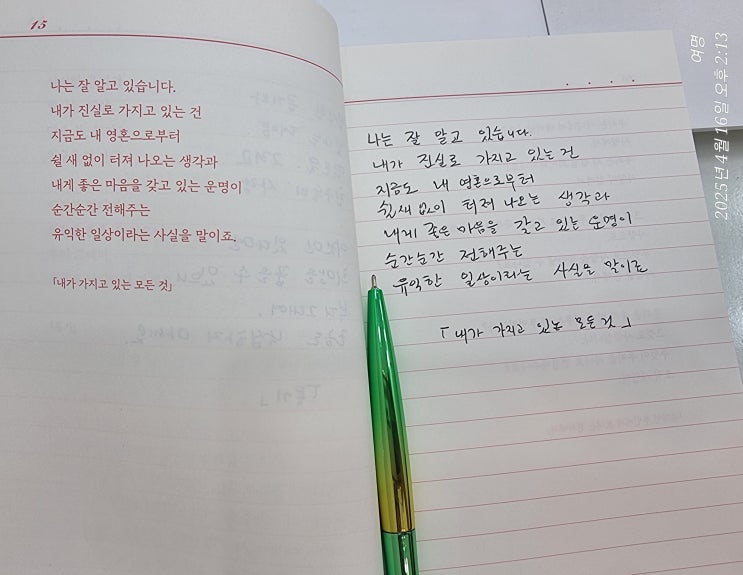 15
나는 잘 알고 있습니다.
내가 진실로 가지고 있는 건
지금도 내 영혼으로부터
쉴 새 없이 터져 나오는 생각과
내게 좋은 마음을 갖고 있는 운명이
순간순간 전해주는
유익한 일상이라는 사실을 말이죠.
「내가 가지고 있는 모든 것」
나는 잘 알고 있습니다.
내가 진실로 가지고 있는 건
지금도 내 영혼으로부터
쉴새 없이 터져 나오는 생각과
내게 좋은 마음을 갖고 있는 운명이
순간순간 전해주는
유익한 일상이라는 사실을 말이죠
「내가 가지고 있는 모든 것」
여명
2025년 4월 16일 오후 2:13